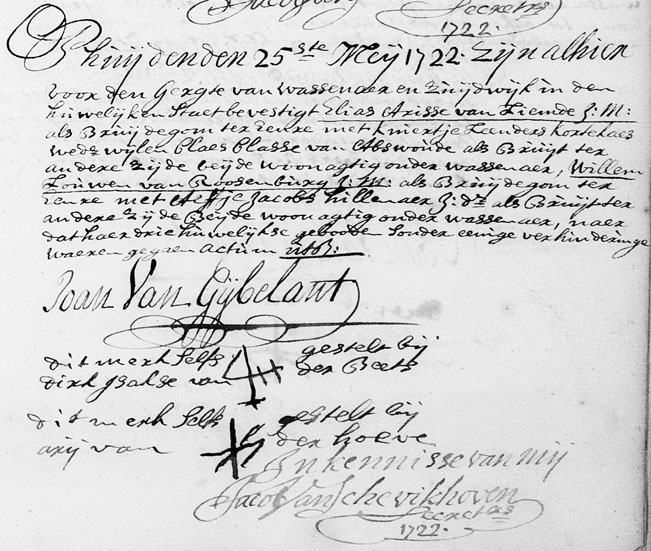 Secrets
1722.
Op huijden den 25ste Meij 1722. Zijn alhier
voor den Geregte van Wassenaer en Zuijdwijk in den
huwelijken Staet bevestigt Elias Arisse van Ziemde J: M:
als Bruijdegom ter eenre met Kniertje Leenders Kortekaes
wedz wijlen Claes Blasse van Alswonde als Bruijt ter
andere Zijde beijde woonagtig onder wassenaer, Willem
Louwen van Roosenburg J: M: als Bruijdegom ter
eenre met Aeffje Jacobs hillenaer J: Dr als Bruijt ter
andere Zijde Beijde woonagtig onder wassenaer, naer
dat haer drie huwelijkse geboden sonder eenige verhinderinge
waeren gegaen Actum utsu:
Joan Van Gijbelant
dit merk Selfs gestelt bij
dirk Isakse van der Beets
dit merk Selfs gestelt bij
arij van der hoeve
In kennisse van mij
Jacob Van Schevikhoven
Secrets
1722.